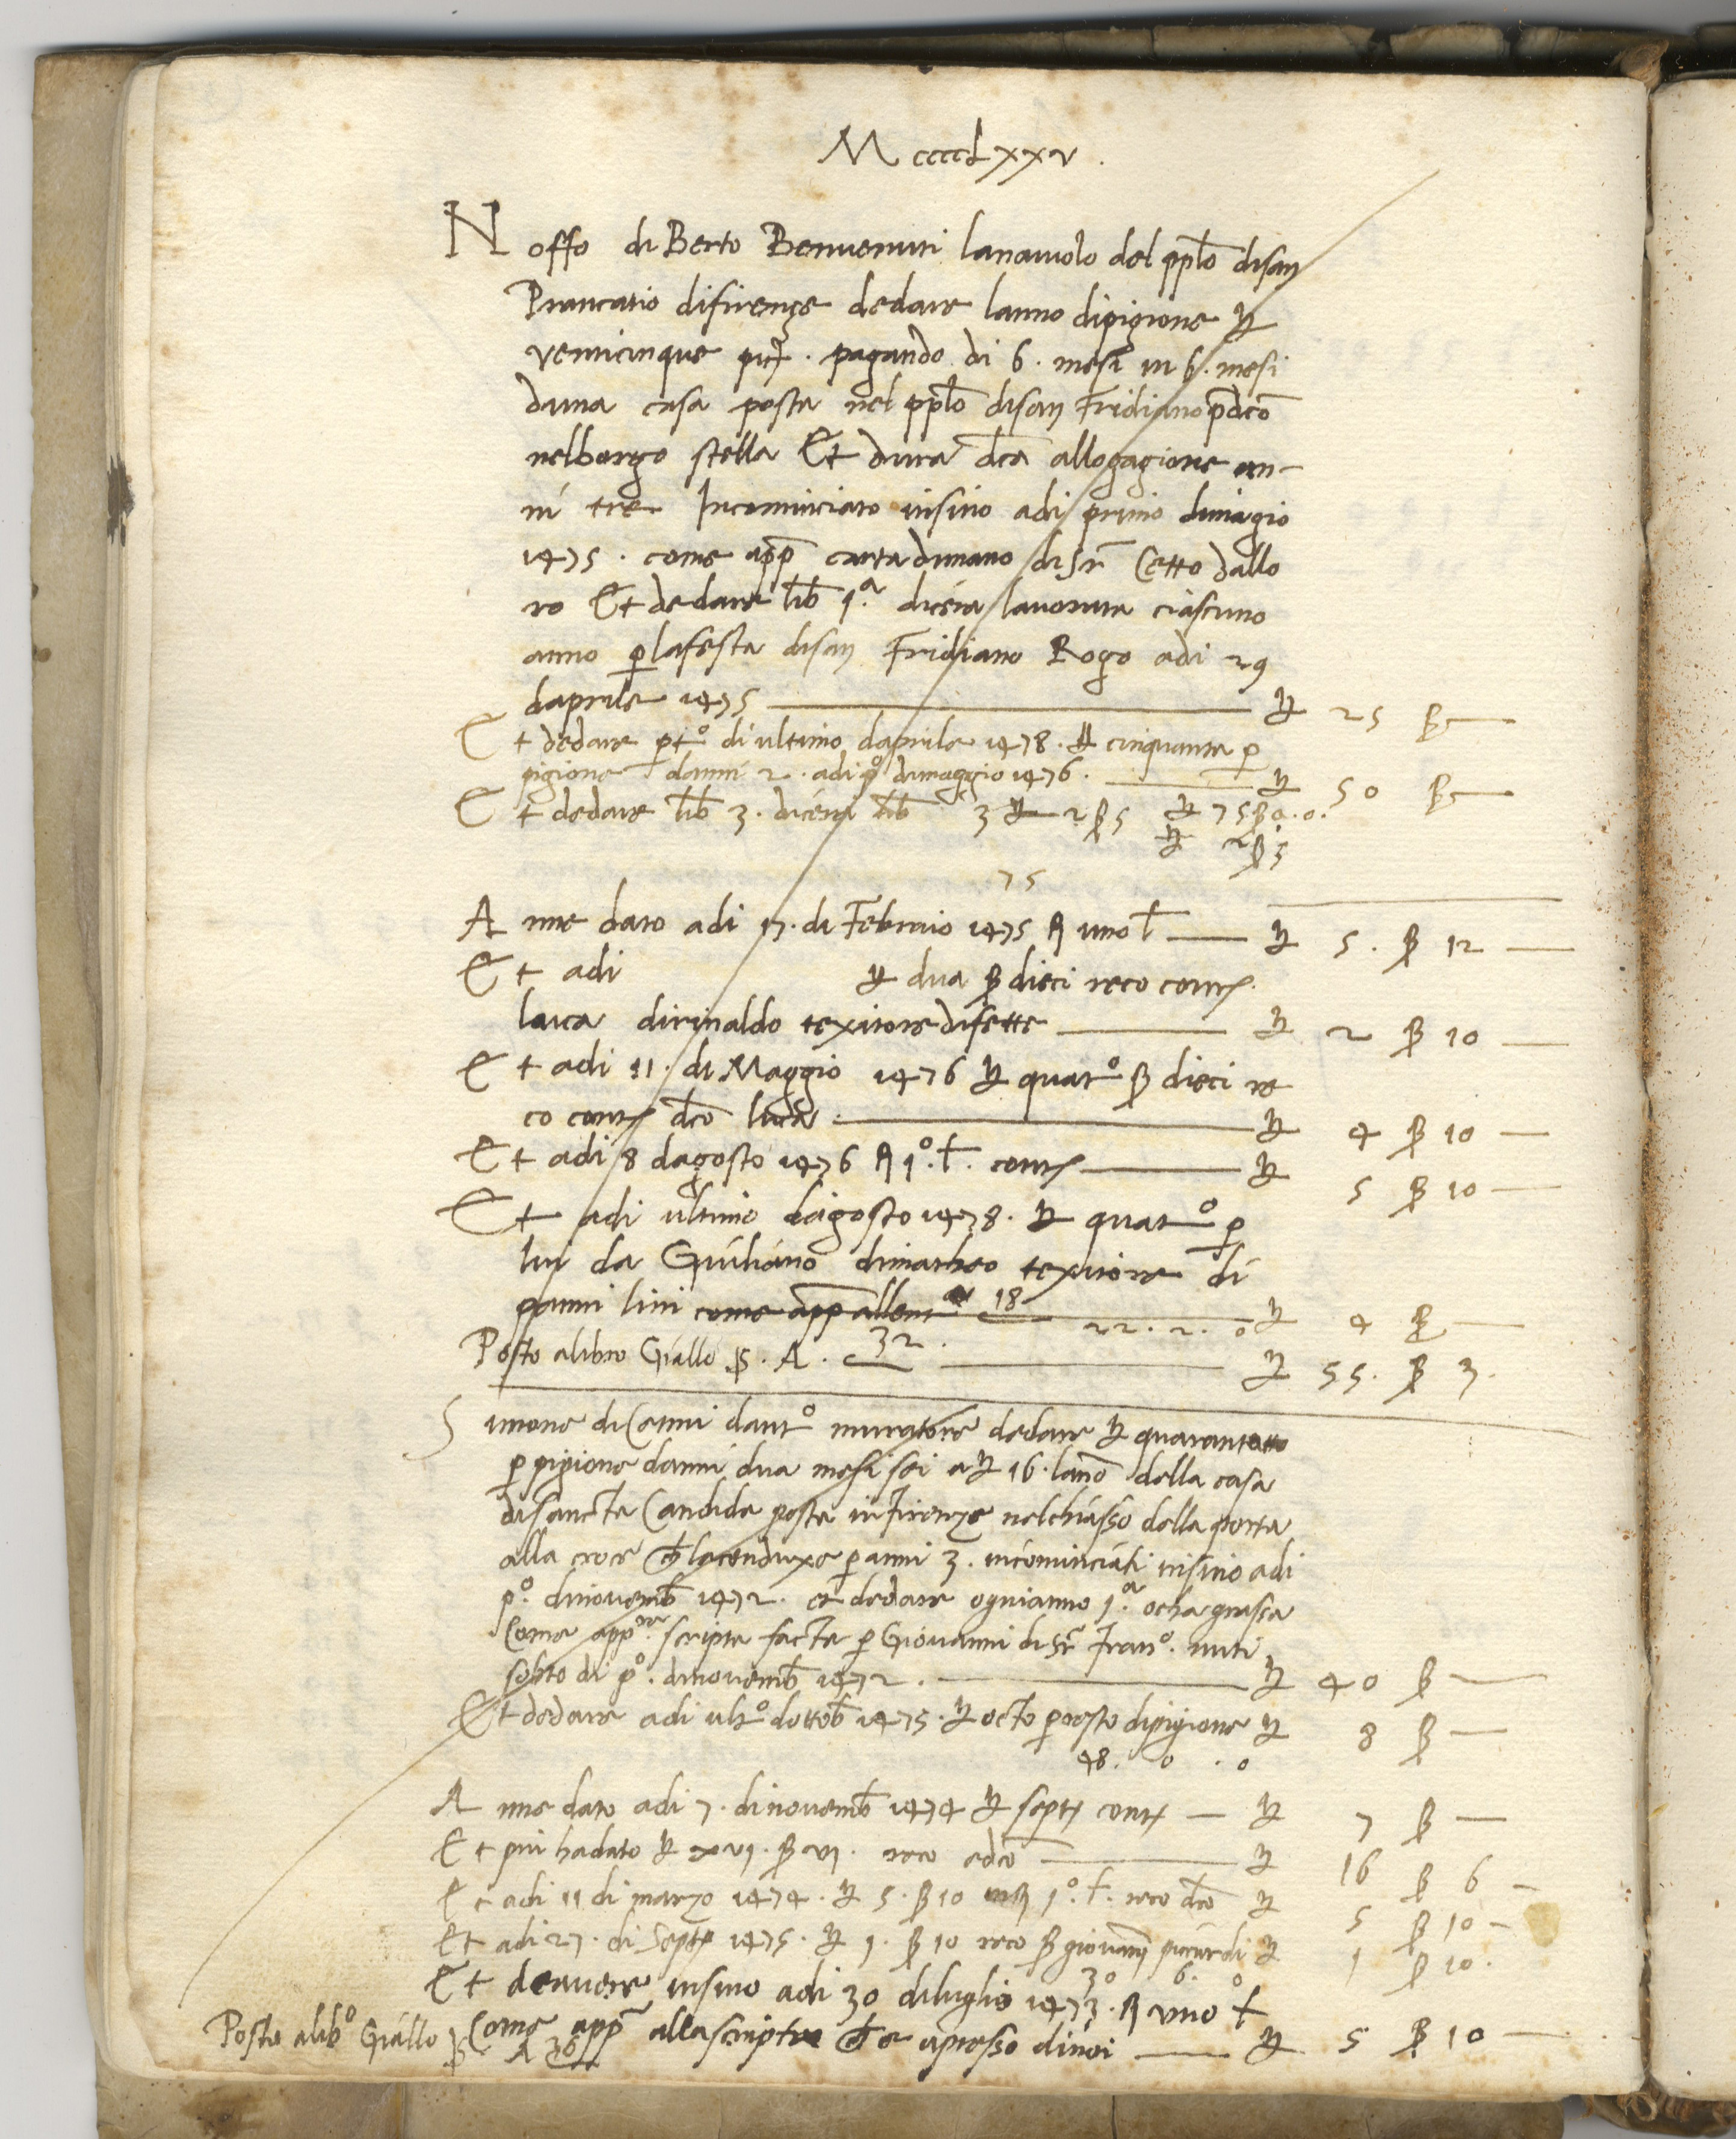 M ccccLxxv.
Noffo di Berto Benvenuti lanaiuolo del pplo disan
Prancatio difirenze dedare lanno dipigione ℔
venticinque pic. pagando di 6. mesi in 6. mesi
duna casa posta nel pplo disan Fridiano pdco
nelborgo stella Et dura dca allogagione an-
ni tre Incominciato insino adi primo dimagio
1475. come app carta dimano di Sr Cetto dallo
ro Et dedare lib 1a. dicera lavorata ciascuno
anno p lafesta disan Fridiano Rogo adi 29
daprile 1475 ℔ 25 β
Et dedare pto di ultimo daprile 1478. ℔ cinquanta p
pigione danni 2. adi po dimaggio 1476. ℔ 50 β
Et dedare lib 3. dicera lib 3 ℔ 2 β 5 ℔ 75 β 0.0.
℔ 2 β 5
75
A mme dato adi 17. di Febraio 1475 uno l ℔ 5. β 12
Et adi ℔ dua β dieci reco cont
luca dirinaldo texitore disette ℔ 2 β 10
Et adi 11. di Maggio 1476 ℔ quato β dieci re
co cont dco luca ℔ 4 β 10
Et adi 8 dagosto 1476 1o. l. cont ℔ 5 β 10
Et adi ultimo dagosto 1478. ℔ quato p
lui da Giuliano dimatheo texitore di
panni lini come app allent 18 22. 2. 0 ℔ 4 β
Posto alibro Giallo S. A. 32. ℔ 55. β 3.
Simone di Canni danto muratore dedare ℔ quarantotto
p pigione danni dua mesi sei a ℔ 16. lano della casa
disancta Candida posta in Firenze nelchiasso della porta
alla croce ch laconduxe p anni 3. incominciati insino adi
po. dinovemb 1472. et dedare ognianno 1a. ocha grassa
Come app scripta facta p Giovanni di Sr Frano. nuti
sobto di po. dinovemb 1472. ℔ 40 β
Et dedare adi ulto dottob 1475. ℔ octo p resto dipigione ℔ 8 β
48. 0. 0
A mme dato adi 7. dinovemb 1474 ℔ sept cont ℔ 7 β
Et piu hadato ℔ xvi. β vi. reco edco ℔ 16 β 6
Et adi 11 di marzo 1474. ℔ 5. β 10 in 1o. l. reco dco ℔ 5 β 10
Et adi 27. di Sept 1475. ℔ 1. β 10 reco β giovani ℔ 1 β 10.
30 6. 0
Et deavere insino adi 30 diluglio 1473. uno l
Come app allascripta ch e apresso dinoi ℔ 5 β 10
Posto alibo Giallo S A 36